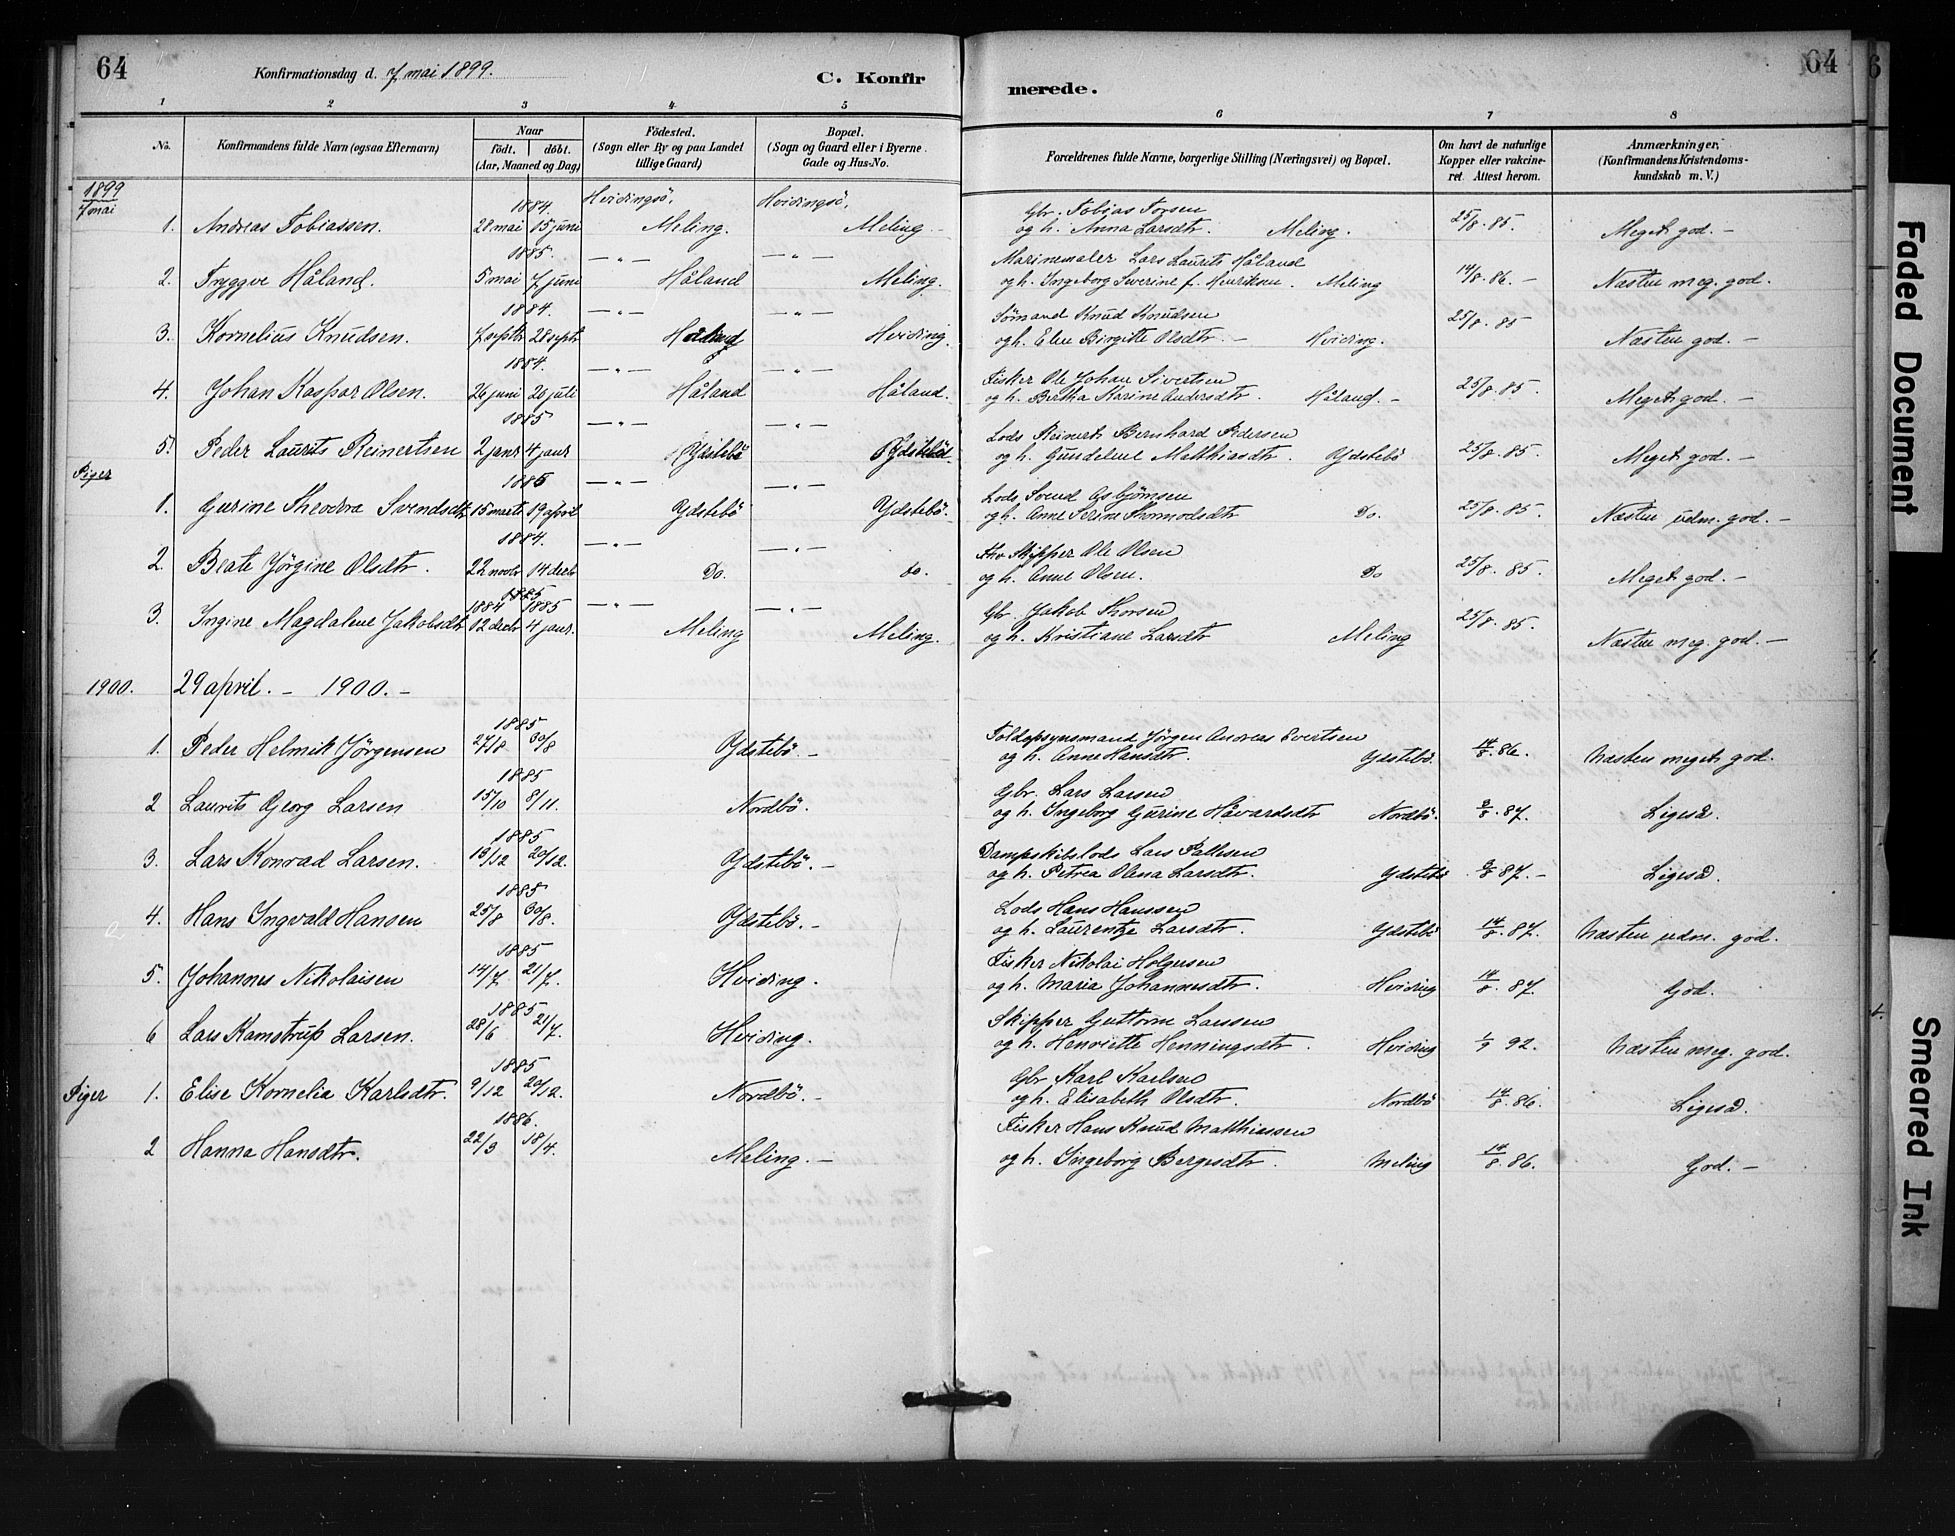 64 Konfirmationsdag d. 7 mai 1899. C. Konfirmerede. 64
1 2 3 4 5 6 7 8
No. Konfirmandens fulde Navn (ogsaa Efternavn) Naar födt. döbt. (Aar, Maaned og Dag) Födested. (Sogn eller By og paa Landet tillige Gaard) Bopæl. (Sogn og Gaard eller i Byerne Gade og Hus-No. Forældrenes fulde Navne, borgerlige Stilling (Næringsvei) og Bopæl. Om havt de naturlige Kopper eller vakcineret. Attest herom. Anmærkninger. (Konfirmandens Kristendomskundskab m. V.)
1899
7 mai
1884. Hvidingsö. Hvidingsö. Gbr. Tobias Torsen
1. Andreas Tobiassen. 28 mai 15 juni Meling. Meling. og h. Anna Larsdtr. Meling. 25/8. 85. Meget god. –
1885. —„— —„— Marinemaler Lars Laurits Håland
2. Tryggve Håland. 5 mai 7 juni Håland Meling. og h. Ingeborg Severine f. Henriksen. Meling 14/8. 86. – Næsten meg. god.
1884. —„— —„— Sömand Knud Knudsen
3. Kornelius Knudsen. 7 septr 28 septr Håland Hviding. og h. Elen Birgitte Olsdtr. – Hviding. 25/8. 85 Næsten god. –
1884. —„— —„— Fisker Ole Johan Sivertsen
4. Johan Kaspar Olsen. 26 juni 20 juli Håland Håland. og h. Bertha Karine Andersdtr. Håland – 25/8. 85. Meget god. –
1885 —„— —„— Lods Reinert Bernhard Pedersen
5. Peder Laurits Reinertsen 2 janr 4 janr Ydstebö Ydstebö og h. Gundeline Matthiasdtr. Ydstebö 25/8. 85. Meget god. –
Piger
1885 —„— —„— Lods Svend Asbjörnsen
1. Gurine Theodra Svendsdtr 15 marts 19 april Ydstebö Ydstebö. og h. Anne Serine Thormodsdtr Do. 25/8. 85. Næsten udm. god. –
1884. —„— —„— Skipper Ole Olsen
2. Beate Jörgine Olsdtr. 22 novbr 14 decbr Do. do. og h. Anne Olsen. Do 25/8. 85. Meget god. –
1884 1885 —„— —„— Gbr. Jakob Thorsen
3. Ingine Magdalene Jakobsdtr 12 decbr 4 janr. Meling Meling. og h. Kristiane Larsdtr Meling 25/8. 85. Næsten meg. god. –
1900. 29 april. – 1900. –
1885 Toldopsynsmand Jörgen Andreas Evertsen
1. Peder Helmik Jörgensen 27/8 30/8 Ydstebö. – og h. Anne Hansdtr. Ydstebö. 14/8. 86. Næsten meget god.
1885 Gbr. Lars Larsen
2 Laurits Georg Larsen 15/10 8/11. Nordbö. og h. Ingeborg Gurine Håvardsdtr Nordbö. 87. Ligeså.
1885 Dampskibslods Lars Pallesen
3. Lars Konrad Larsen. 13/12 20/12. Ydstebö. – og h. Petrea Olena Larsdtr. Ydstebö 87. – Ligeså.
1885 Lods Hans Hanssen
4. Hans Ingvald Hansen 25/8 30/8. Ydstebö. – og h. Laurentze Larsdtr. Ydstebö 14/8. 87. Næsten udm. god.
1885 Fisker Nikolai Holgersen
5. Johannes Nikolaisen 14/7 21/7. Hviding. og h. Maria Johannesdtr. Hviding 14/8. 87. God.
1885 Skipper Guttorm Larssen
6 Lars Kamstrup Larsen. 28/6 21/7. Hviding. og h. Henriette Henningsdtr. Hviding 1/9 92. Næsten meg. god.
1885 Gbr Karl Karlsen
Piger 1. Elise Kornelia Karlsdtr. 9/12 20/12. Nordbö. – og h. Elisabeth Olsdtr. Nordbö 14/8. 86. Ligeså.
1886. Fisker Hans Knud Matthiassen
2 Hanna Hansdtr. 22/3 18/4. Meling. – og h. Ingeborg Bergesdtr. Meling 14/8. 86. God. –
Faded Document
Smeared Ink